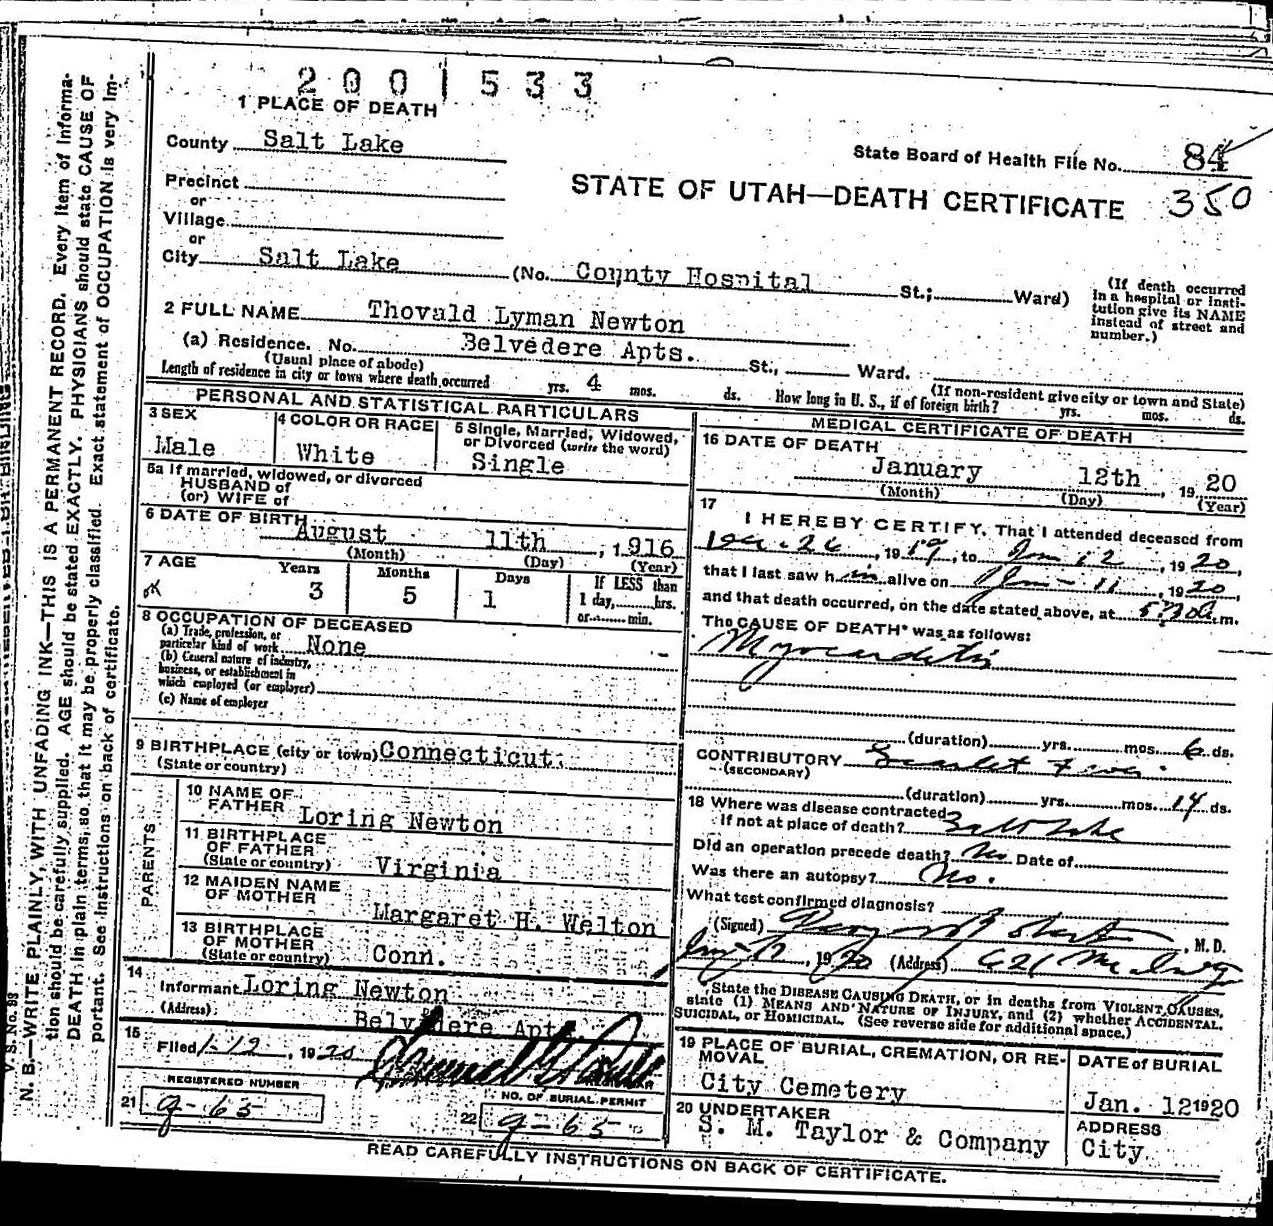 200 533
1 PLACE OF DEATH
County Salt Lake
State Board of Health File No. 84
350
Precinct
or
STATE OF UTAH—DEATH CERTIFICATE
Village
or
City Salt Lake (No. County Hospital St.; Ward)
(If death occurred in a hospital or insti-
tution give its NAME
instead of street and
number.)
2 FULL NAME Thovald Lyman Newton
(a) Residence. No. Belvedere Apts. St., Ward.
(Usual place of abode)
(If non-resident give city or town and State)
Length of residence in city or town where death occurred yrs. 4 mos. ds. How long in U. S., if of foreign birth? yrs. mos. ds.
PERSONAL AND STATISTICAL PARTICULARS
3 SEX
Male
4 COLOR OR RACE
White
5 Single, Married, Widowed,
or Divorced (write the word)
Single
5a If married, widowed, or divorced
HUSBAND of
(or) WIFE of
6 DATE OF BIRTH
August 11th, 1916
(Month) (Day) (Year)
7 AGE Years Months Days If LESS than
3 5 1 1 day, hrs.
or min.
8 OCCUPATION OF DECEASED
(a) Trade, profession, or
particular kind of work None
(b) General nature of industry,
business, or establishment in
which employed (or employer)
(c) Name of employer
9 BIRTHPLACE (city or town) Connecticut.
(State or country)
PARENTS
10 NAME OF
FATHER Loring Newton
11 BIRTHPLACE
OF FATHER
(State or country) Virginia
12 MAIDEN NAME
OF MOTHER
Margaret H. Welton
13 BIRTHPLACE
OF MOTHER
(State or country) Conn.
14
Informant Loring Newton
(Address) Belvedere Apt
15
Filed 1-12, 1920
REGISTERED NUMBER
21 g-65
NO. OF BURIAL PERMIT
22 g-65
MEDICAL CERTIFICATE OF DEATH
16 DATE OF DEATH
January 12th, 1920
(Month) (Day) (Year)
17
I HEREBY CERTIFY, That I attended deceased from
Dec. 26, 1919, to Jan 12, 1920,
that I last saw him alive on Jan-11, 1920,
and that death occurred, on the date stated above, at m.
The CAUSE OF DEATH* was as follows:
Myocarditis
(duration) yrs. mos. 6 ds.
CONTRIBUTORY Scarlet Fever.
(SECONDARY)
(duration) yrs. mos. 14 ds.
18 Where was disease contracted
if not at place of death? Salt Lake
Did an operation precede death? No. Date of
Was there an autopsy? No.
What test confirmed diagnosis?
(Signed) M. D.
Jan-12, 1920 (Address) 621
*State the DISEASE CAUSING DEATH, or in deaths from VIOLENT CAUSES,
state (1) MEANS AND NATURE OF INJURY, and (2) whether ACCIDENTAL,
SUICIDAL, or HOMICIDAL. (See reverse side for additional space.)
19 PLACE OF BURIAL, CREMATION, OR RE-
MOVAL
City Cemetery
DATE of BURIAL
Jan. 12 1920
20 UNDERTAKER
S. M. Taylor & Company
ADDRESS
City
READ CAREFULLY INSTRUCTIONS ON BACK OF CERTIFICATE.
V. S. No. 93
N. B.—WRITE PLAINLY, WITH UNFADING INK—THIS IS A PERMANENT RECORD. Every item of informa-
tion should be carefully supplied. AGE should be stated EXACTLY. PHYSICIANS should state CAUSE OF
DEATH in plain terms, so that it may be properly classified. Exact statement of OCCUPATION is very im-
portant. See instructions on back of certificate.